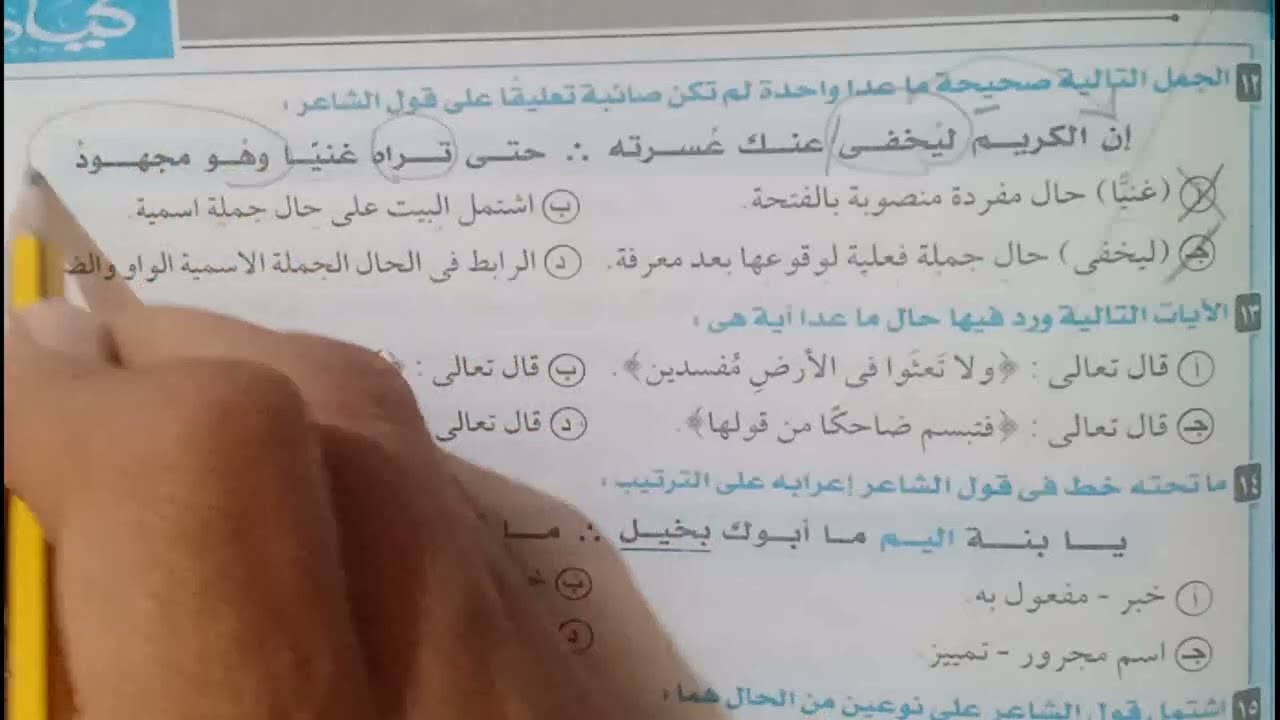 كيان
١٢ الجمل التالية صحيحة ما عدا واحدة لم تكن صائبة تعليقًا على قول الشاعر :
إن الكريـم ليُخفـى عنـك عُسـرته ∴ حتـى تـراه غنيًـا وهُـو مجهـودُ
أ (غنيًّا) حال مفردة منصوبة بالفتحة.
ب اشتمل البيت على حال جملة اسمية.
جـ (ليخفى) حال جملة فعلية لوقوعها بعد معرفة.
د الرابط فى الحال الجملة الاسمية الواو
١٣ الآيات التالية ورد فيها حال ما عدا آية هى :
أ قال تعالى : ﴿ولا تَعثَوا فى الأرضِ مُفسدين﴾.
ب قال تعالى : ﴿
جـ قال تعالى : ﴿فتبسم ضاحكًا من قولها﴾.
د قال تعالى
١٤ ما تحته خط فى قول الشاعر إعرابه على الترتيب :
يـا بنـة اليـم مـا أبـوك بخيـل ∴ مـا
أ خبر - مفعول به.
ب
جـ اسم مجرور - تمييز.
د
١٥ اشتمل قول الشاعر على نوعين من الحال هما :